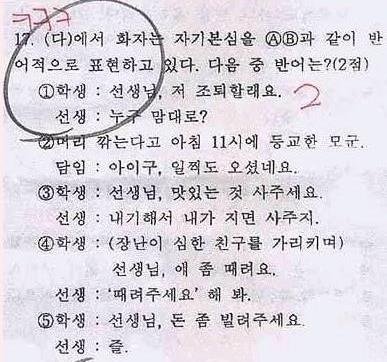 ㅋㅋㅋ
17. (다)에서 화자는 자기본심을 ⒶⒷ과 같이 반
어적으로 표현하고 있다. 다음 중 반어는?(2점)
①학생 : 선생님, 저 조퇴할래요.
2
선생 : 누구 맘대로?
②머리 깎는다고 아침 11시에 등교한 모군.
담임 : 아이구, 일찍도 오셨네요.
③학생 : 선생님, 맛있는 것 사주세요.
선생 : 내기해서 내가 지면 사주지.
④학생 : (장난이 심한 친구를 가리키며)
선생님, 애 좀 때려요.
선생 : '때려주세요' 해 봐.
⑤학생 : 선생님, 돈 좀 빌려주세요.
선생 : 즐.